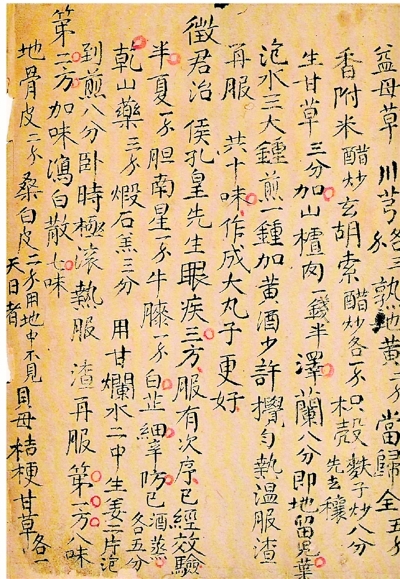 益母草 川芎 各三分 熟地黄 二分 當歸 全五分
香附米醋炒 玄胡索醋炒各一分 枳殼麩子炒八分 先去穰
生甘草 三分加山樝肉一錢半 澤蘭八分即地留兒葉
泡水三大鍾煎一鍾加黄酒少許攪勻熱温服渣
再服 共十味作成大丸子更好
徵君治 侯孔皇先生眼疾三方服有次序已經效驗
半夏一分 胆南星一分 牛膝一分 白芷 細辛 防已酒蒸 各五分
乾山藥 三分 煅石羔三分 用甘爛水二中生姜二片泡
到煎八分卧時極滚熱服渣再服 第一方八味
第二方加味瀉白散七味
地骨皮二分 桑白皮二分用地中不見天日者 貝母 桔梗 甘草各一